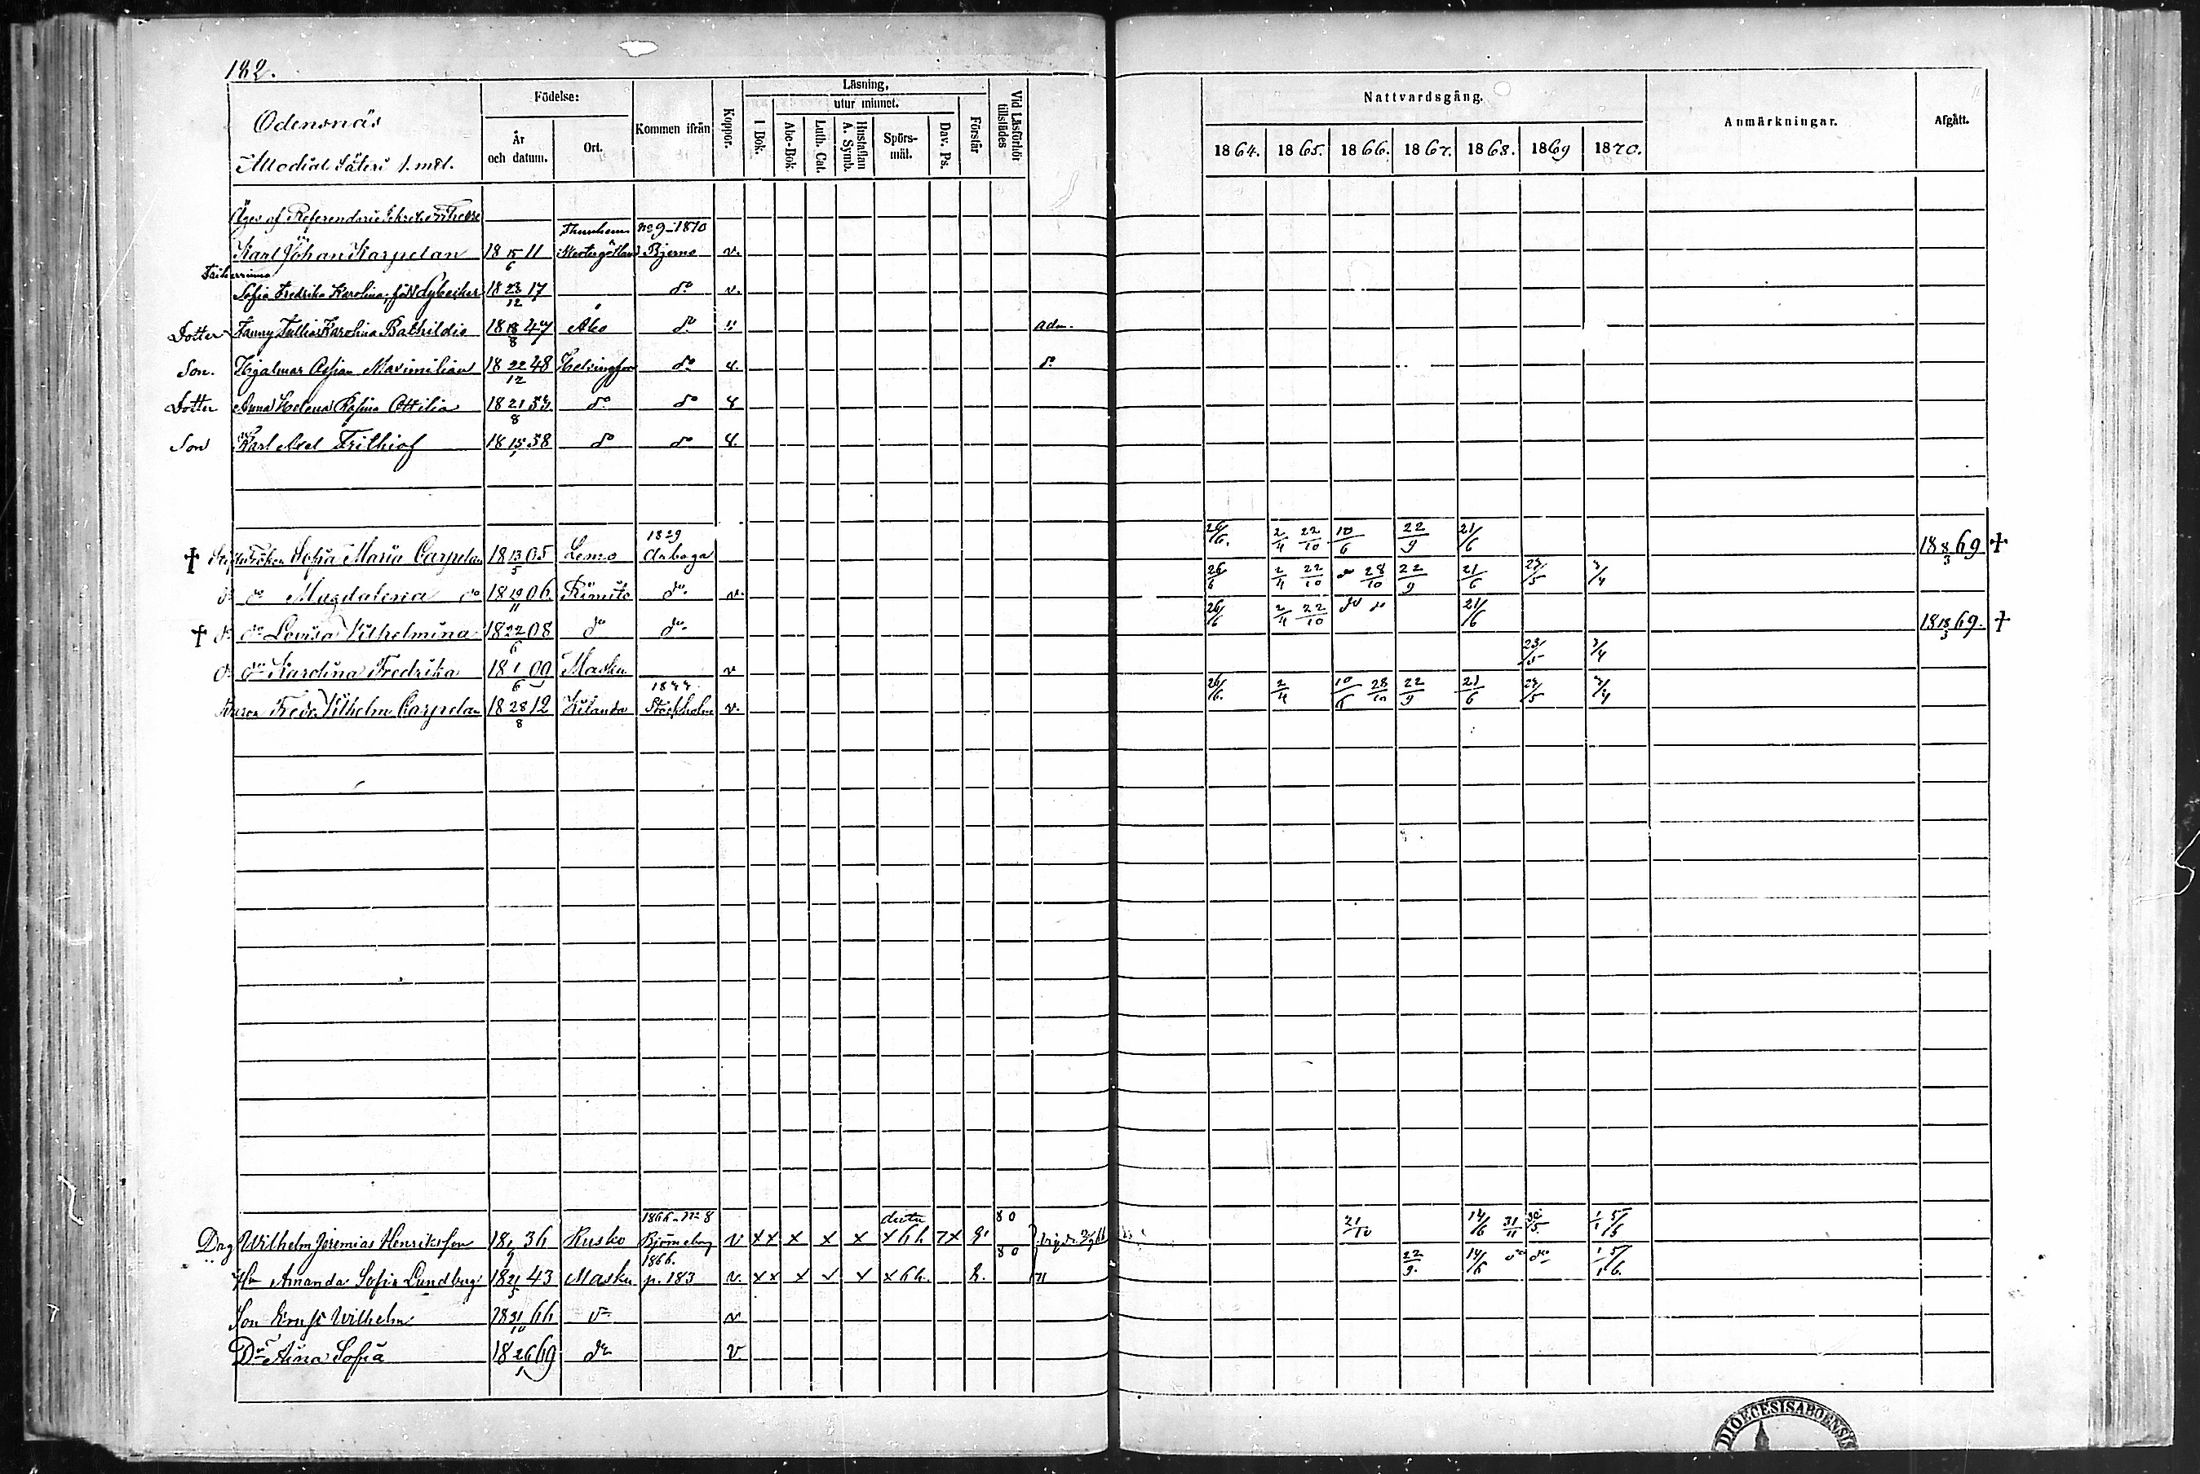 182.
Odensnäs
Allodial Säteri 1. mtl.
Födelse:
År och datum.
Ort.
Kommen ifrån
Koppor.
Läsning,
I Bok.
utur minnet.
Abc-Bok.
Luth. Cat.
Hustaflan A. Symb.
Spörsmål.
Dav. Ps.
Förstår
Vid Läsförhör tillstädes
Nattvardsgång.
1864. 1865. 1866. 1867. 1868. 1869 1870.
Anmärkningar.
Afgått.
Äges af Referendarie
no 9 1870
Karl Johan Karpelan 18 15/6 11 Bjerno v.
Friherrinna
Sofia Fredrika Karolina, född 18 23/12 17 do v.
Dotter Fanny Karolina Bathildis 18 18/8 47 Åbo do adm.
Son. Hjalmar Maximilian 18 22/12 48 Helsingfors do do
Dotter Anna Helena Ottilia 18 21/8 do do
Son Karl Axel Frithiof 18 58 do do
1829
† Sofia Maria Carpelan 18 13/5 05 Lemo Arboga 26/6. 2/4 22/10 10/6 22/9 21/6 18 8/3 69 †
do do Magdalena do 18 19/11 06 Rimito do v. 26/6 2/4 22/10 do 28/10 22/9 21/6 23/5 3/4
† do do Lovisa Vilhelmina 18 22/6 08 do do 26/6 2/4 22/10 do do 21/6 18 18/3 69. †
do do Karolina Fredrika 18 1/6 09 Masku v 23/5 3/4
Fredr. Vilhelm Carpelan 18 28/8 12 Stockholm v. 26/6. 2/4 10/6 28/10 22/9 21/6 23/5 3/4
1866 no 8
Drg Wilhelm Jeremias Henriksson 18 36 Rusko Björneborg v xx x x x x 7x 80 21/10 14/6 31/11
1866.
Hu Amanda Sofia Lundberg 18 43 Masku p. 183 v. xx x x x 80 22/9. 14/6 do do
Son Ernst Wilhelm 18 31/10 66 do v
Dr Aina Sofia 18 69 do v
DIOECESIS ABOENSIS